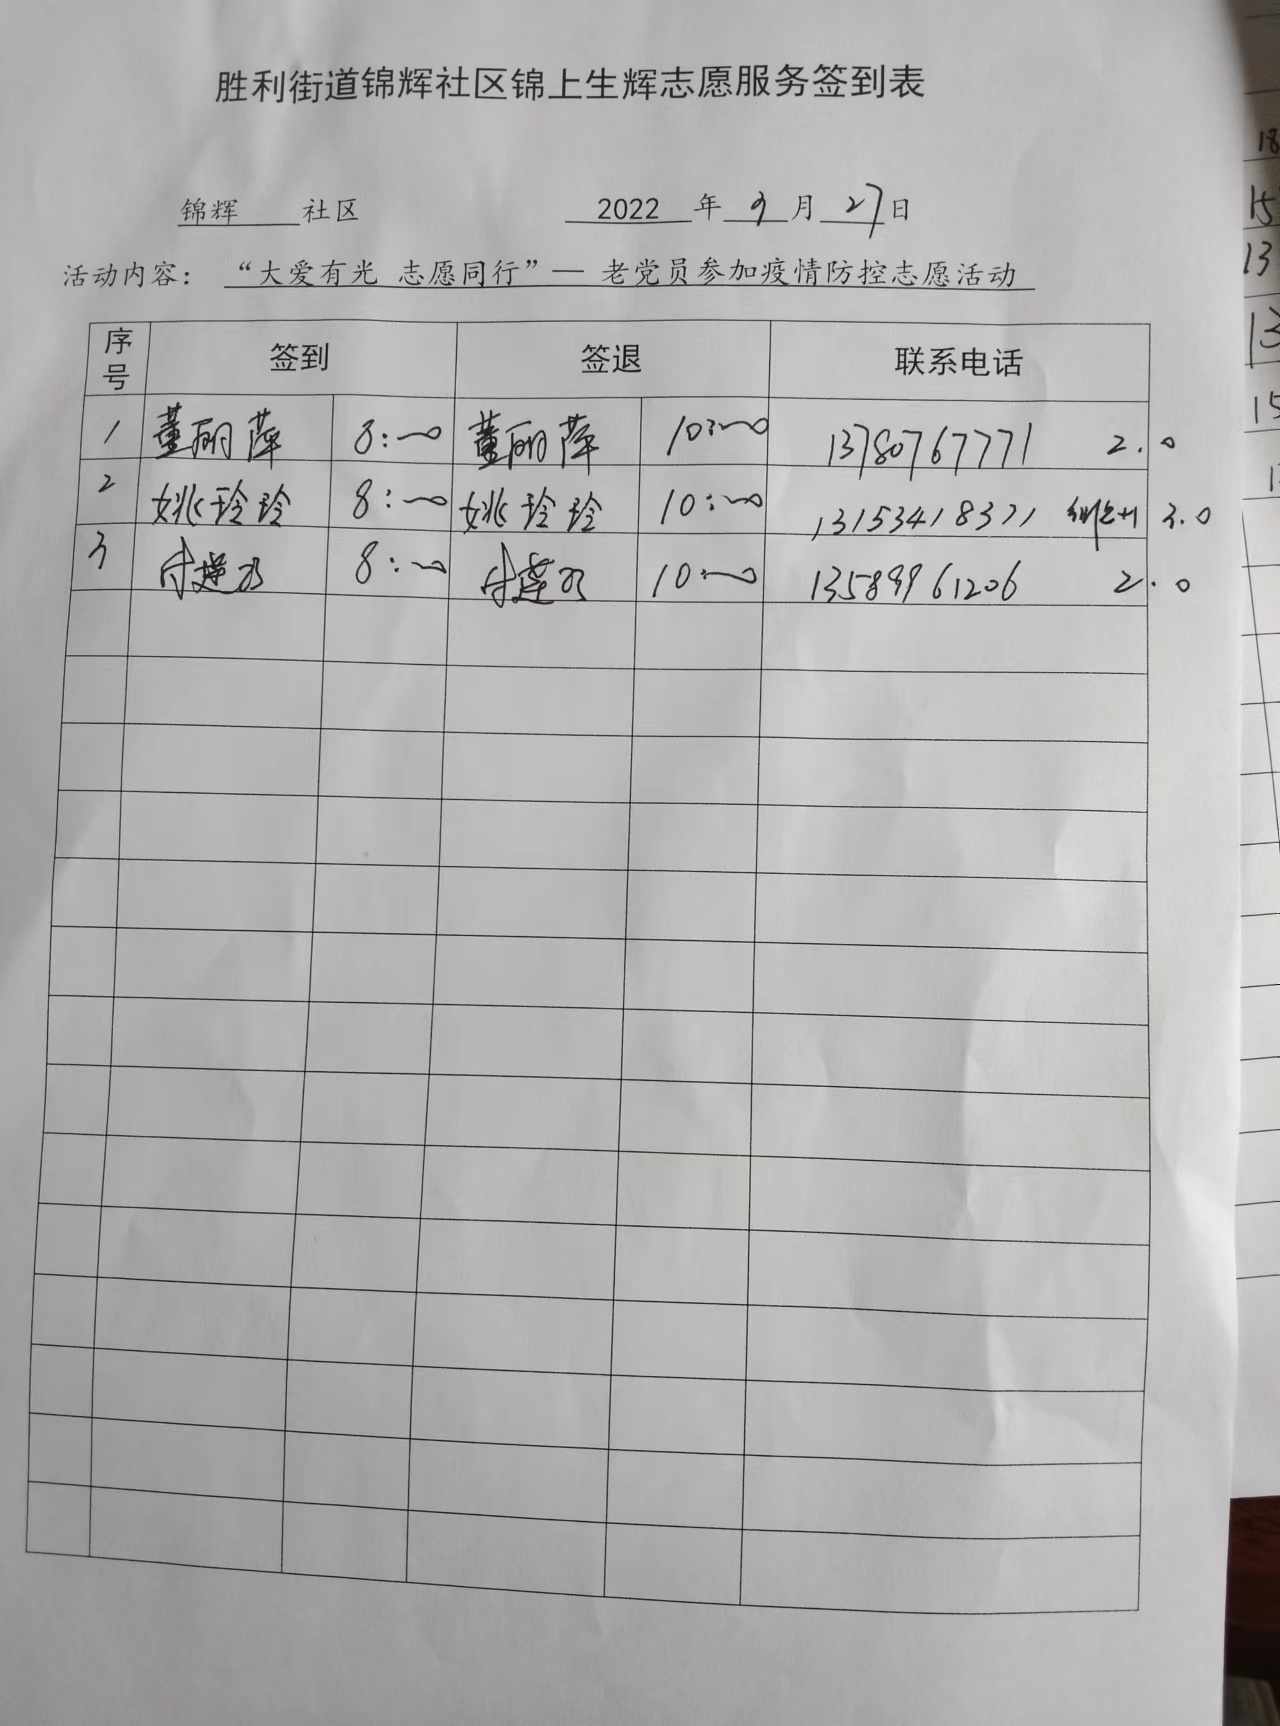 胜利街道锦辉社区锦上生辉志愿服务签到表
锦辉 社区 2022 年 3 月 27 日
活动内容： “大爱有光 志愿同行”— 老党员参加疫情防控志愿活动
序号 签到 签退 联系电话
1 董丽萍 8:00 董丽萍 10:00 13780767771 2.0
2 姚玲玲 8:00 姚玲玲 10:00 13153418371 3.0
3 8:00 10:00 13589961206 2.0